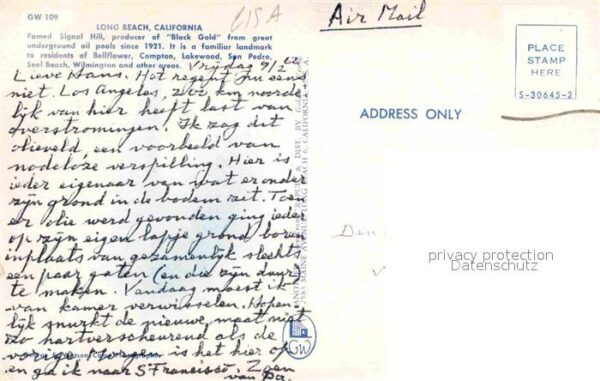 GW 109
LONG BEACH, CALIFORNIA
Famed Signal Hill, producer of "Black Gold" from great
underground oil pools since 1921. It is a familiar landmark
to residents of Bellflower, Compton, Lakewood, San Pedro,
Seal Beach, Wilmington and other areas.
Vrijdag 9/2
Lieve Hans. Het regent nu eens
niet. Los Angeles, 200 km noorde
lijk van hier heeft last van
overstromingen. Ik zag dit
olieveld, een voorbeeld van
nodeloze verspilling. Hier is
ieder eigenaar van wat er onder
zijn grond in de bodem zit. Toen
er olie werd gevonden ging ieder
op zijn eigen lapje grond boren
inplaats van gezamenlijk slechts
een paar gaten (en die zijn duur)
te maken. Vandaag moest ik
van kamer verwisselen. Hopen
lijk snurkt de nieuwe maat niet
zo hartverscheurend als de
vorige. Morgen is het hier op
en ga ik naar S Francisco. Zoen
van Pa.
Air Mail
PLACE
STAMP
HERE
S-30645-2
ADDRESS ONLY
privacy protection
Datenschutz
GW